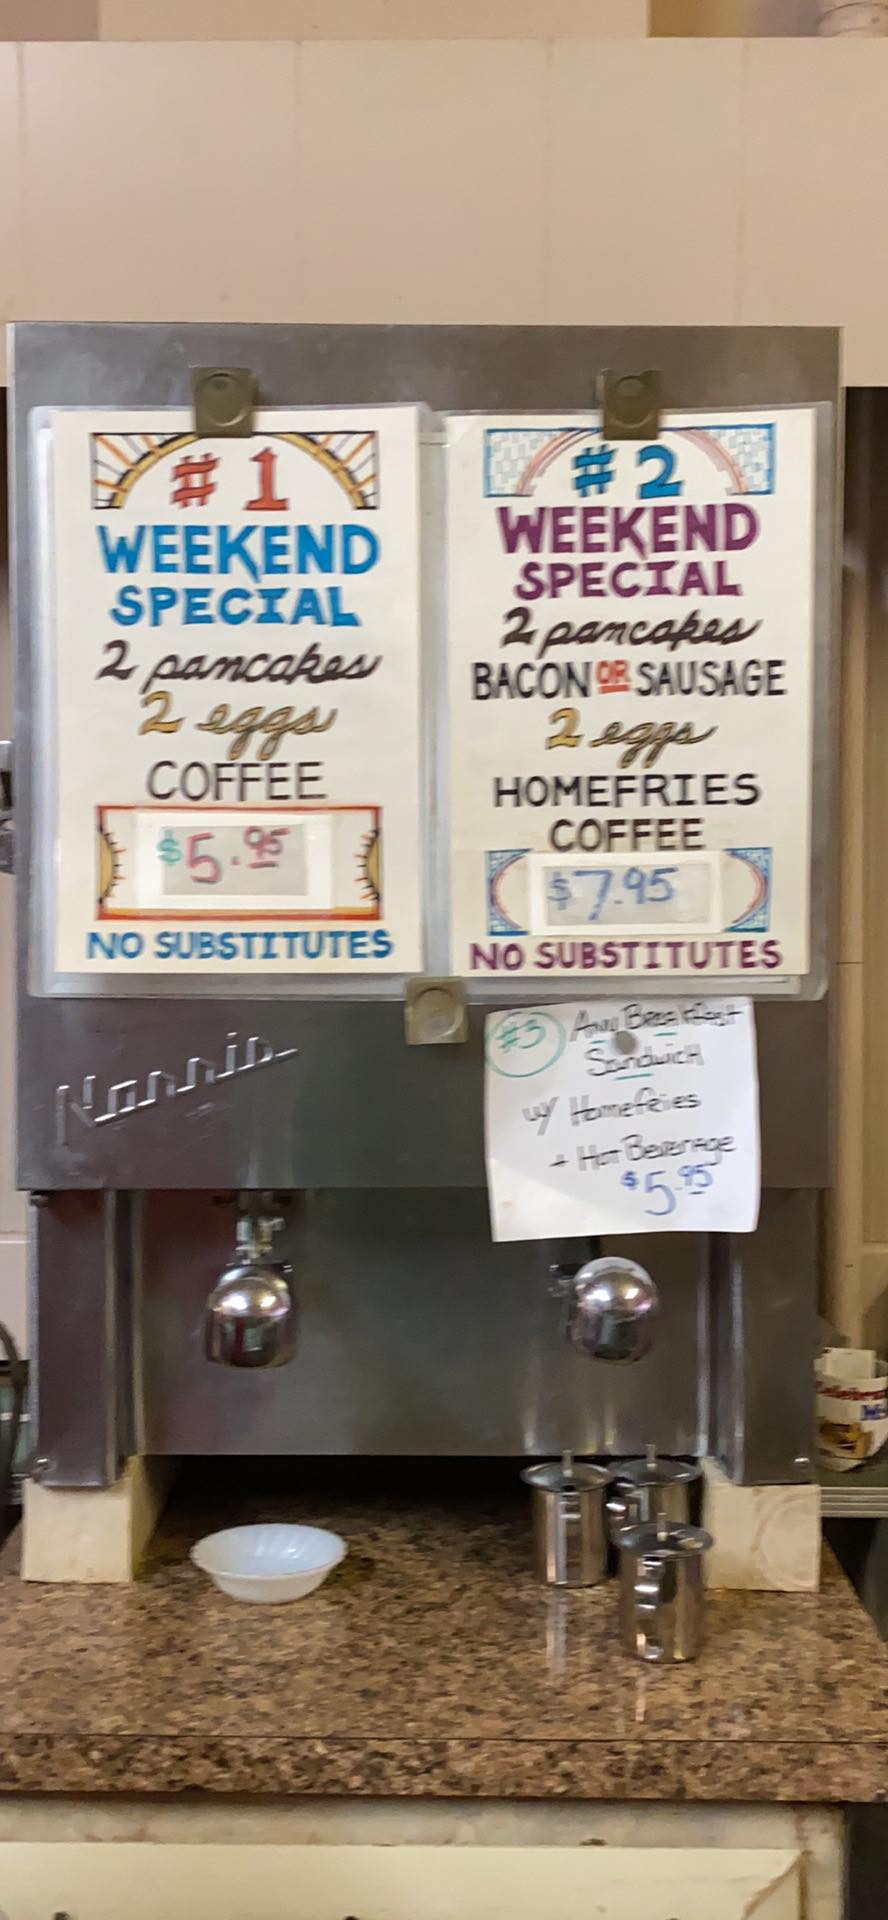 #1
WEEKEND
SPECIAL
2 pancakes
2 eggs
COFFEE
$5.95
NO SUBSTITUTES
#2
WEEKEND
SPECIAL
2 pancakes
BACON OR SAUSAGE
2 eggs
HOMEFRIES
COFFEE
$7.95
NO SUBSTITUTES
#3 Any Breakfast
Sandwich
w/ Homefries
+ Hot Beverage
$5.95
Norris